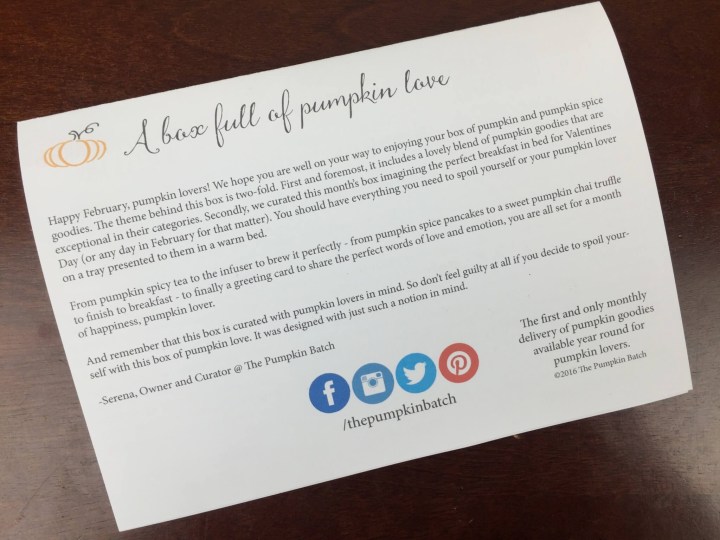 A box full of pumpkin love
Happy February, pumpkin lovers! We hope you are well on your way to enjoying your box of pumpkin and pumpkin spice
goodies. The theme behind this box is two-fold. First and foremost, it includes a lovely blend of pumpkin goodies that are
exceptional in their categories. Secondly, we curated this month's box imagining the perfect breakfast in bed for Valentines
Day (or any day in February for that matter). You should have everything you need to spoil yourself or your pumpkin lover
on a tray presented to them in a warm bed.
From pumpkin spicy tea to the infuser to brew it perfectly - from pumpkin spice pancakes to a sweet pumpkin chai truffle
to finish to breakfast - to finally a greeting card to share the perfect words of love and emotion, you are all set for a month
of happiness, pumpkin lover.
And remember that this box is curated with pumpkin lovers in mind. So don't feel guilty at all if you decide to spoil your-
self with this box of pumpkin love. It was designed with just such a notion in mind.
-Serena, Owner and Curator @ The Pumpkin Batch
/thepumpkinbatch
The first and only monthly
delivery of pumpkin goodies
available year round for
pumpkin lovers.
©2016 The Pumpkin Batch